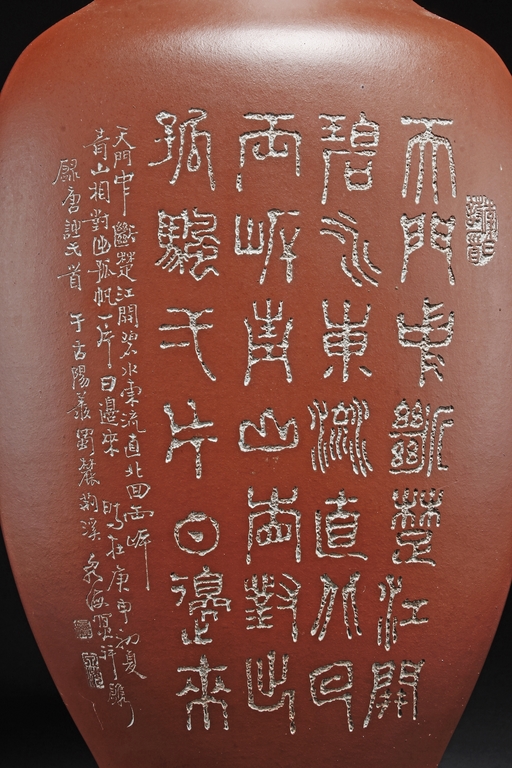 天門中斷楚江開
碧水東流直北回
兩岸青山相對出
孤帆一片日邊來
天門中斷楚江開碧水東流直北回兩岸
青山相對出孤帆一片日邊來 時在庚申初夏
唐詩一首 于古陽羨蜀麓荊溪